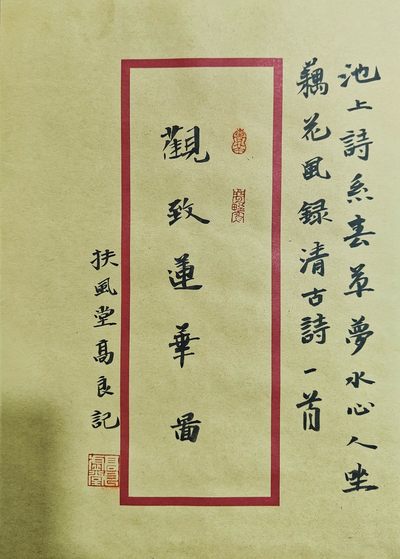 池上詩系春草夢水心人坐
藕花風録清古詩一首
觀致蓮華圖
扶風堂高良記